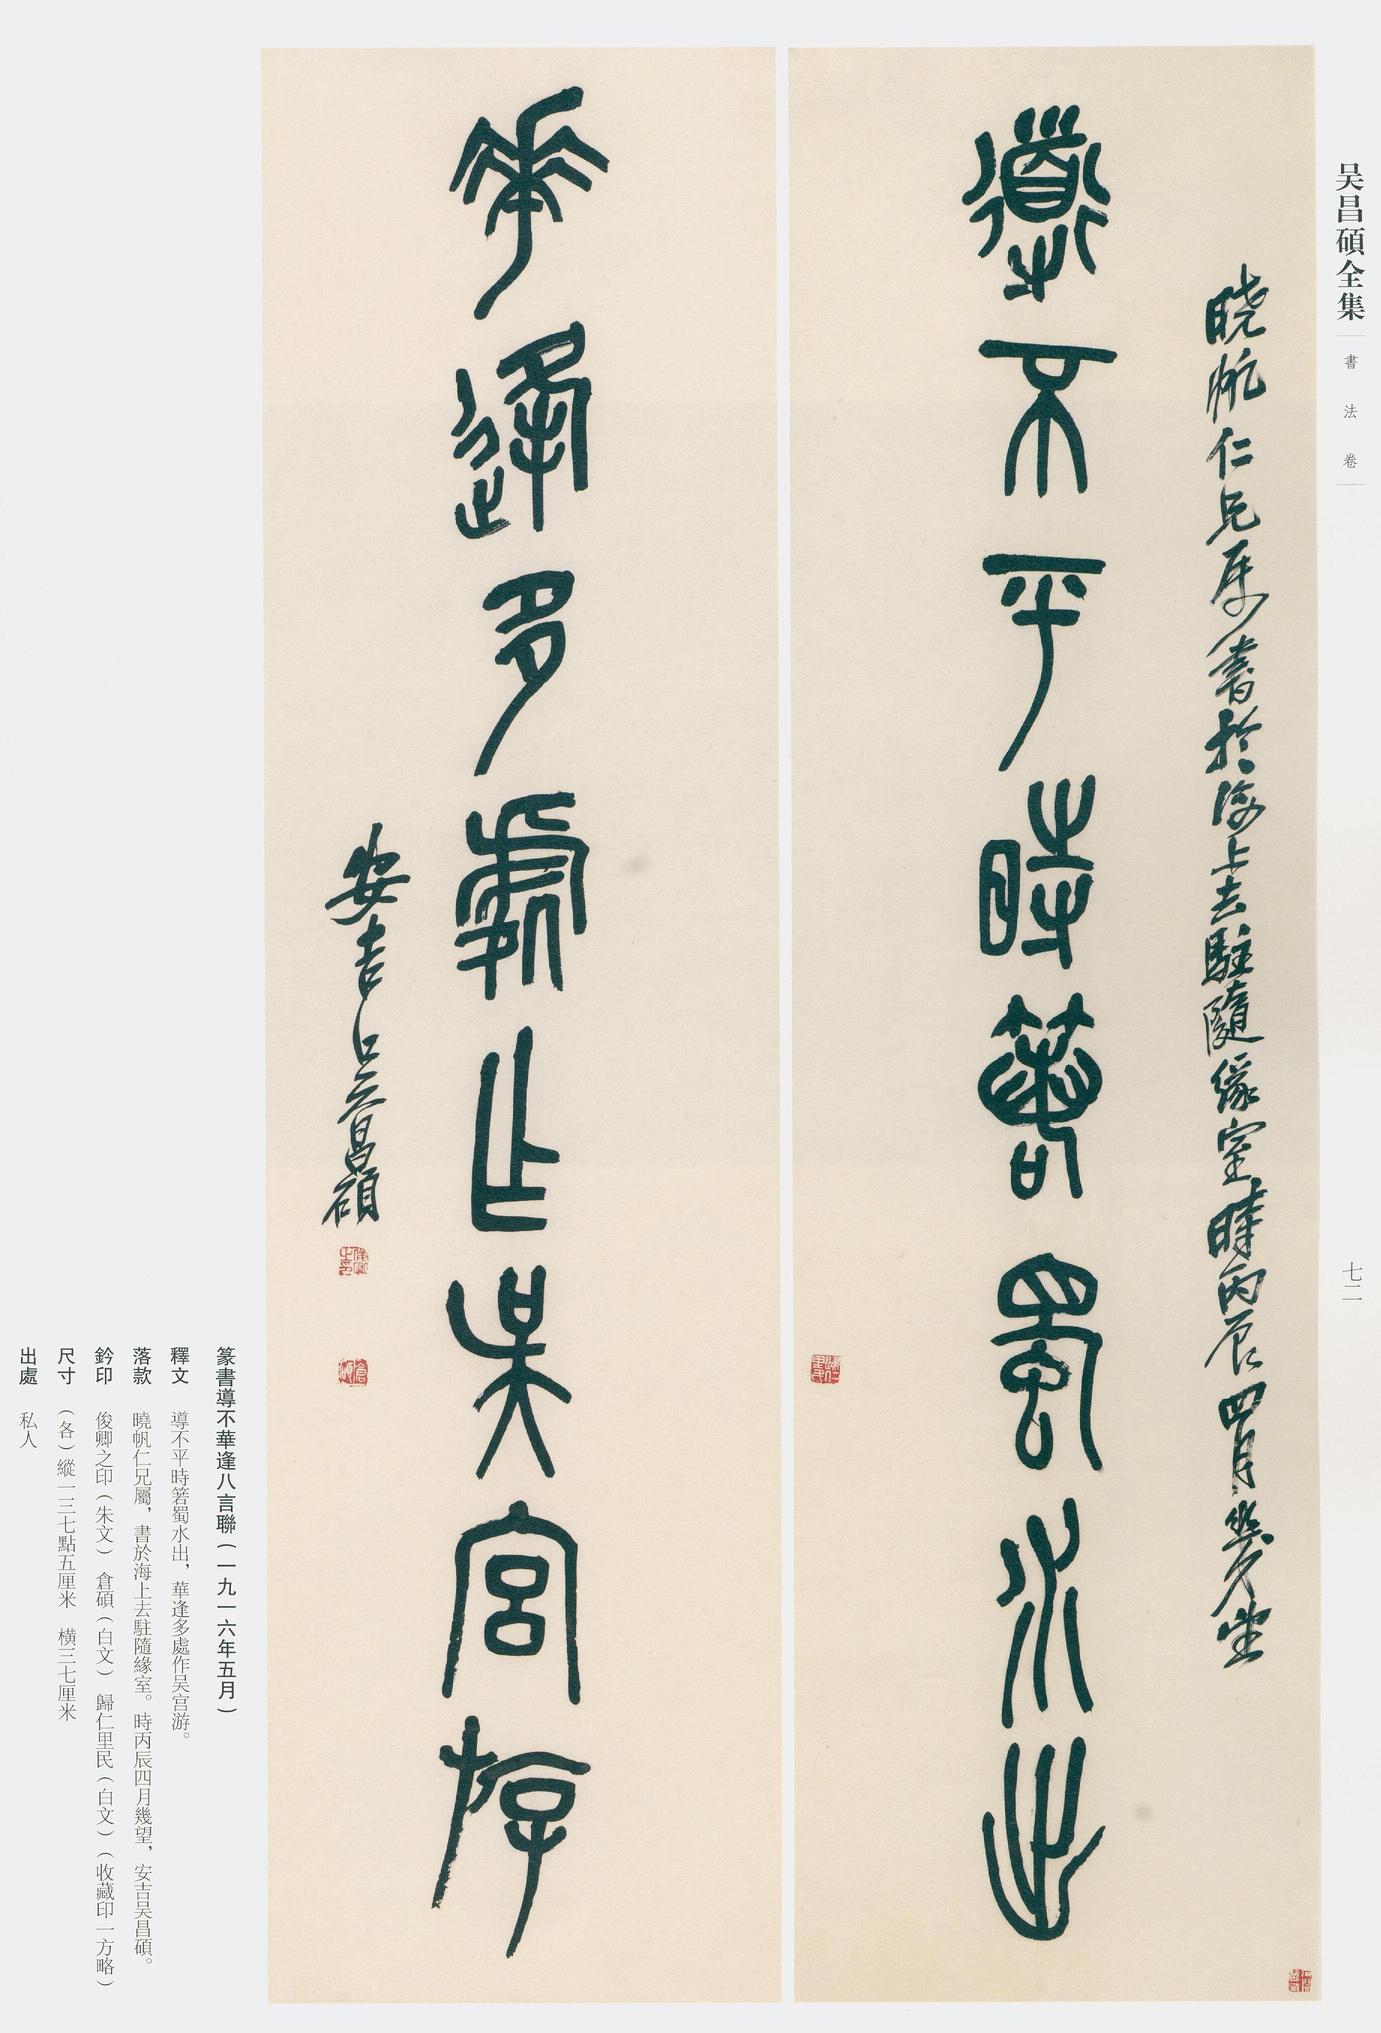 吴昌碩全集
書法卷
七二
曉帆仁兄屬書於海上去駐隨緣室時丙辰四月幾望
導不平時箬蜀水出
華逢多處作吴宫游
安吉吴昌碩
篆書導不華逢八言聯（一九一六年五月）
釋文　導不平時箬蜀水出，華逢多處作吴宫游。
落款　曉帆仁兄屬，書於海上去駐隨緣室。時丙辰四月幾望，安吉吴昌碩。
鈐印　俊卿之印（朱文）　倉碩（白文）　歸仁里民（白文）（收藏印一方略）
尺寸　（各）縱一三七點五厘米　橫三七厘米
出處　私人
俊卿之印
倉碩
歸仁里民